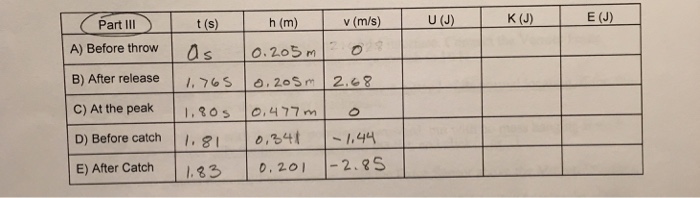 Part III t (s) h (m) v (m/s) U (J) K (J) E (J)
A) Before throw 0s 0.205m 0
B) After release 1.765 0.205m 2.68
C) At the peak 1.80s 0.477m 0
D) Before catch 1.81 0.341 -1.44
E) After Catch 1.83 0.201 -2.85